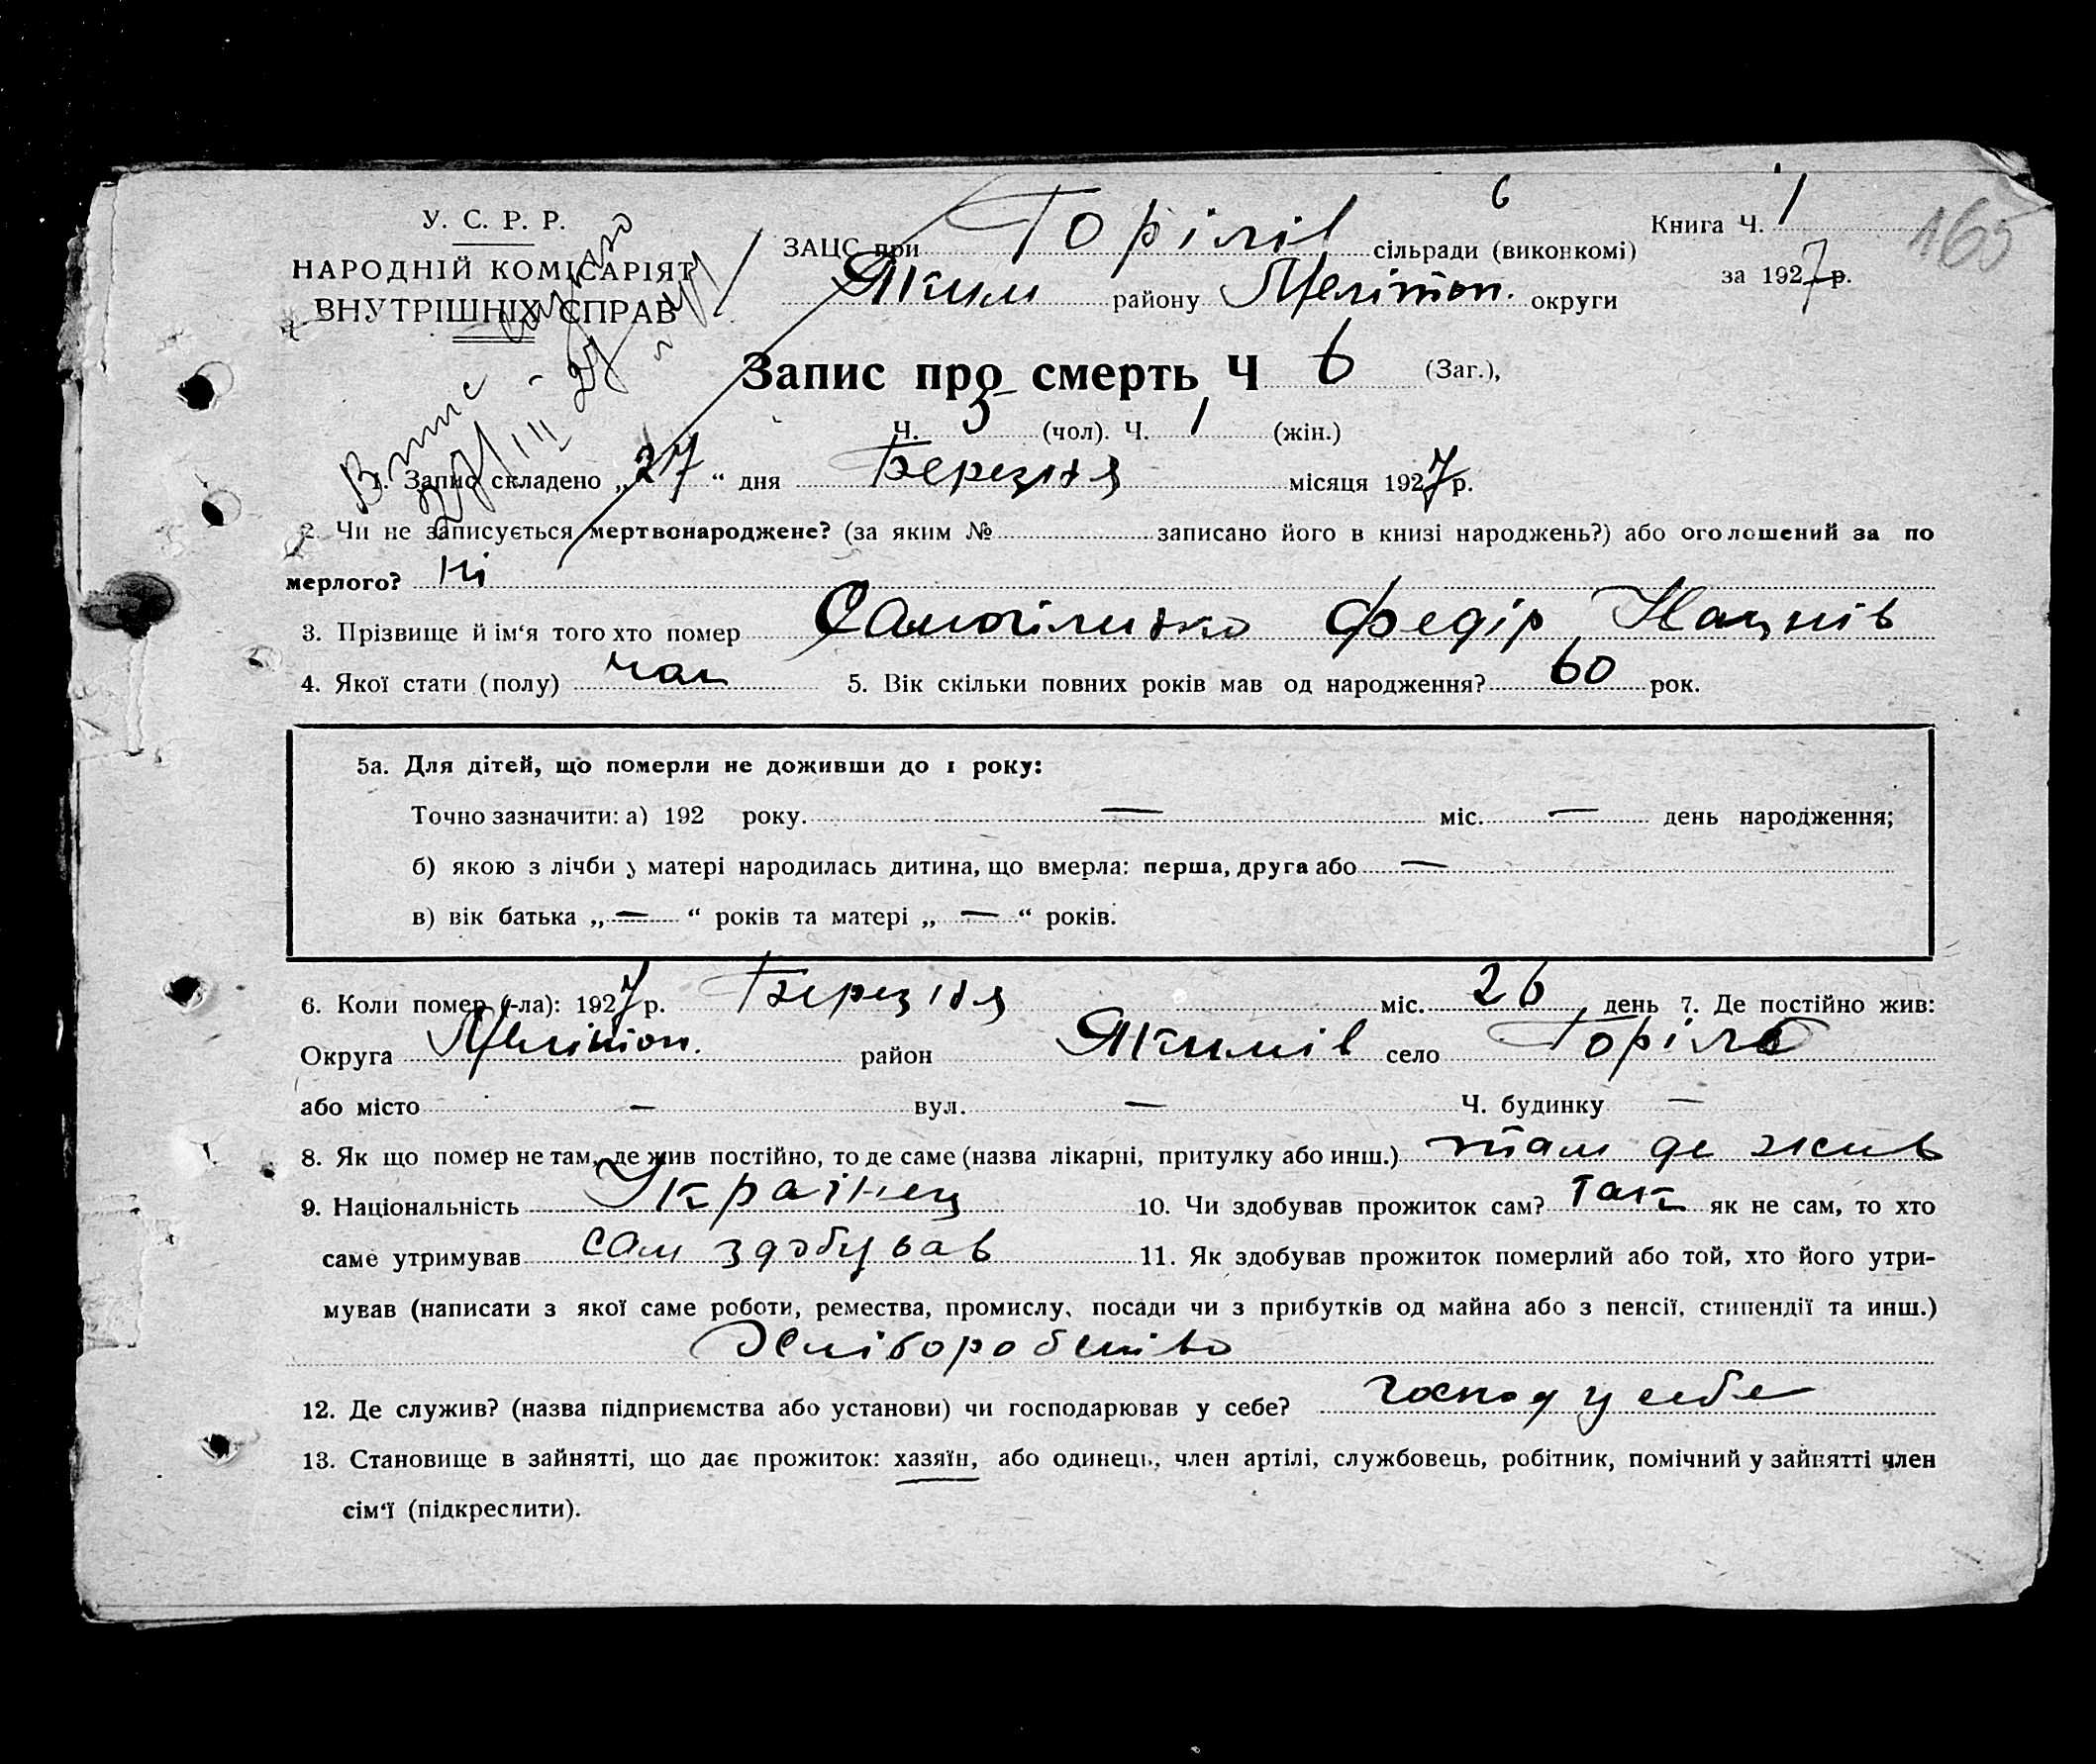 У. С. Р. Р.
НАРОДНІЙ КОМІСАРІЯТ
ВНУТРІШНІХ СПРАВ
Книга Ч. 1
за 1927 р.
165
6
ЗАЦС при Горілів сільради (виконкомі)
Яким району Мелітоп. округи
Запис про смерть Ч 6 (Заг.),
Ч. 5 (чол). Ч. 1 (жін.)
1. Запис складено „27“ дня Березня місяця 1927 р.
2. Чи не записується мертвонароджене? (за яким № записано його в книзі народжень?) або оголошений за по
мерлого? ні
3. Прізвище й ім'я того хто помер Федір
4. Якої стати (полу) чол 5. Вік скільки повних років мав од народження? 60 рок.
5а. Для дітей, що померли не доживши до 1 року:
Точно зазначити: а) 192 року. — міс. — день народження;
б) якою з лічби у матері народилась дитина, що вмерла: перша, друга або —
в) вік батька „—“ років та матері „—“ років.
6. Коли помер (-ла): 1927 р. Березня міс. 26 день 7. Де постійно жив:
Округа Меліттоп. район Якимів село Горіле
або місто — вул. — Ч. будинку —
8. Як що помер не там, де жив постійно, то де саме (назва лікарні, притулку або инш.) там де жив
9. Національність Українец 10. Чи здобував прожиток сам? Так як не сам, то хто
саме утримував сам здобував 11. Як здобував прожиток померлий або той, хто його утри-
мував (написати з якої саме роботи, ремества, промислу, посади чи з прибутків од майна або з пенсії, стипендії та инш.)
Хліборобство
12. Де служив? (назва підприємства або установи) чи господарював у себе? господ у себе
13. Становище в зайнятті, що дає прожиток: хазяїн, або одинець, член артілі, службовець, робітник, помічний у зайнятті член
сім'ї (підкреслити).